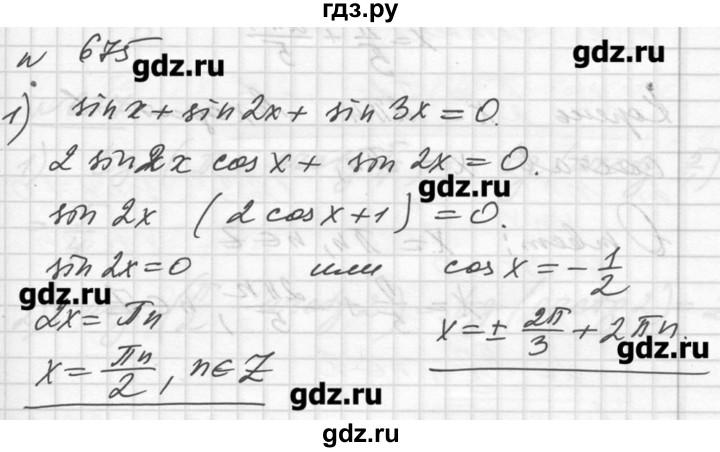 гдз.ру
N 675
gdz.ru
gdz.ru
1) sin x + sin 2x + sin 3x = 0.
2 sin 2x cos x + sin 2x = 0.
gdz.ru
sin 2x (2 cos x + 1) = 0.
sin 2x = 0 или cos x = - 1/2
gdz.ru
2x = πn x = ± 2π/3 + 2πn.
gdz.ru
x = πn/2, n ∈ Z
gdz.ru
gdz.ru